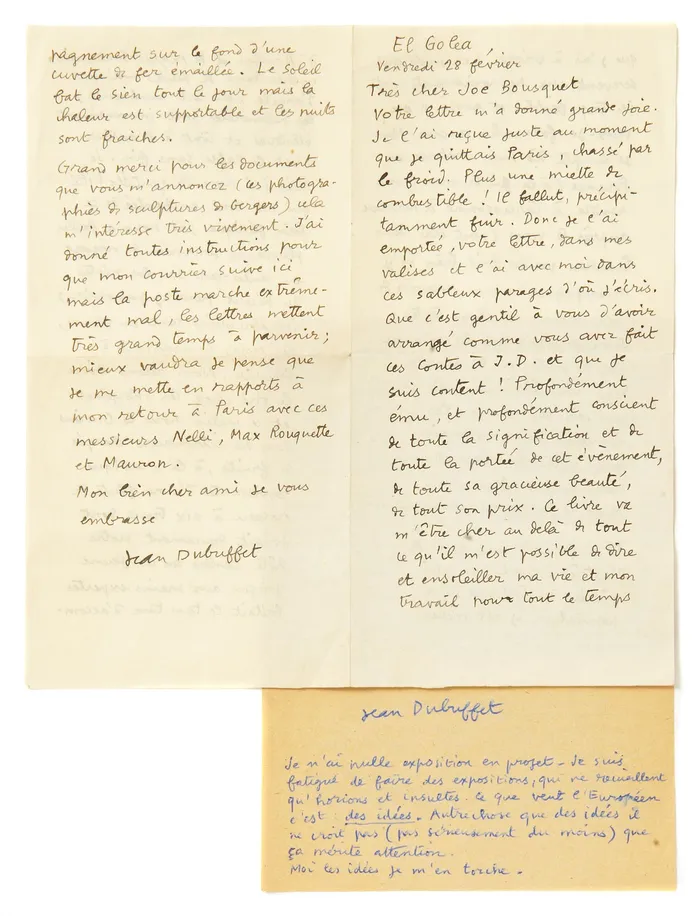 El Golea
Vendredi 28 février
Très cher Joe Bousquet
Votre lettre m'a donné grande joie.
Je l'ai reçue juste au moment
que je quittais Paris, chassé par
le froid. Plus une miette de
combustible ! Il fallut, précipi-
tamment fuir. Donc je l'ai
emportée, votre lettre, dans mes
valises et l'ai avec moi dans
ces sableux parages d'où j'écris.
Que c'est gentil à vous d'avoir
arrangé comme vous avez fait
ces Contes à J.D. et que je
suis content ! Profondément
ému, et profondément conscient
de toute la signification et de
toute la portée de cet évènement,
de toute sa gracieuse beauté,
de tout son prix. Ce livre va
m'être cher au delà de tout
ce qu'il m'est possible de dire
et ensoleiller ma vie et mon
travail pour tout le temps
pagnement sur le fond d'une
cuvette de fer émaillée. Le soleil
bat le sien tout le jour mais la
chaleur est supportable et les nuits
sont fraiches.
Grand merci pour les documents
que vous m'annoncez (ces photogra-
phies de sculptures de bergers) cela
m'intéresse très vivement. J'ai
donné toutes instructions pour
que mon courrier suive ici
mais la poste marche extrême-
ment mal, les lettres mettent
très grand temps à parvenir ;
mieux vaudra je pense que
je me mette en rapports à
mon retour à Paris avec ces
messieurs Nelli, Max Rouquette
et Mauron.
Mon bien cher ami je vous
embrasse
Jean Dubuffet
Jean Dubuffet
Je n'ai nulle exposition en projet. Je suis
fatigué de faire des expositions, qui ne recueillent
qu'horions et insultes. Ce que veut l'Européen
c'est : des idées. Autre chose que des idées il
ne croit pas (pas sérieusement du moins) que
ça mérite attention.
Moi les idées je m'en torche.